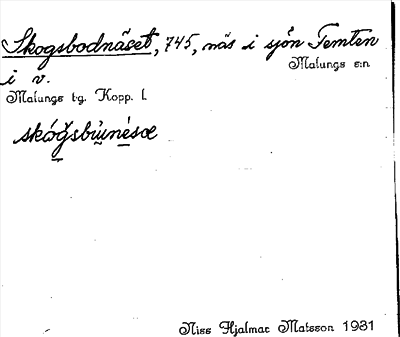 Skogsbodnäset, 745, näs i sjön Femten
Malungs s:n
i v.
Malungs tg. Kopp. l.
skógsbùnèsæ
Niss Hjalmar Matsson 1931